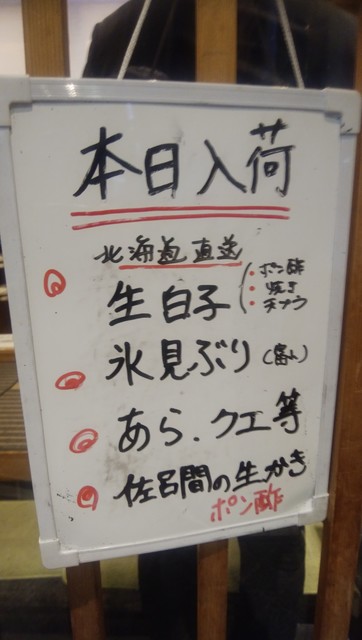 本日入荷
北海道直送
生白子
・ポン酢
・焼き
・天プラ
氷見ぶり(富山)
あら.クエ等
佐呂間の生かき
ポン酢